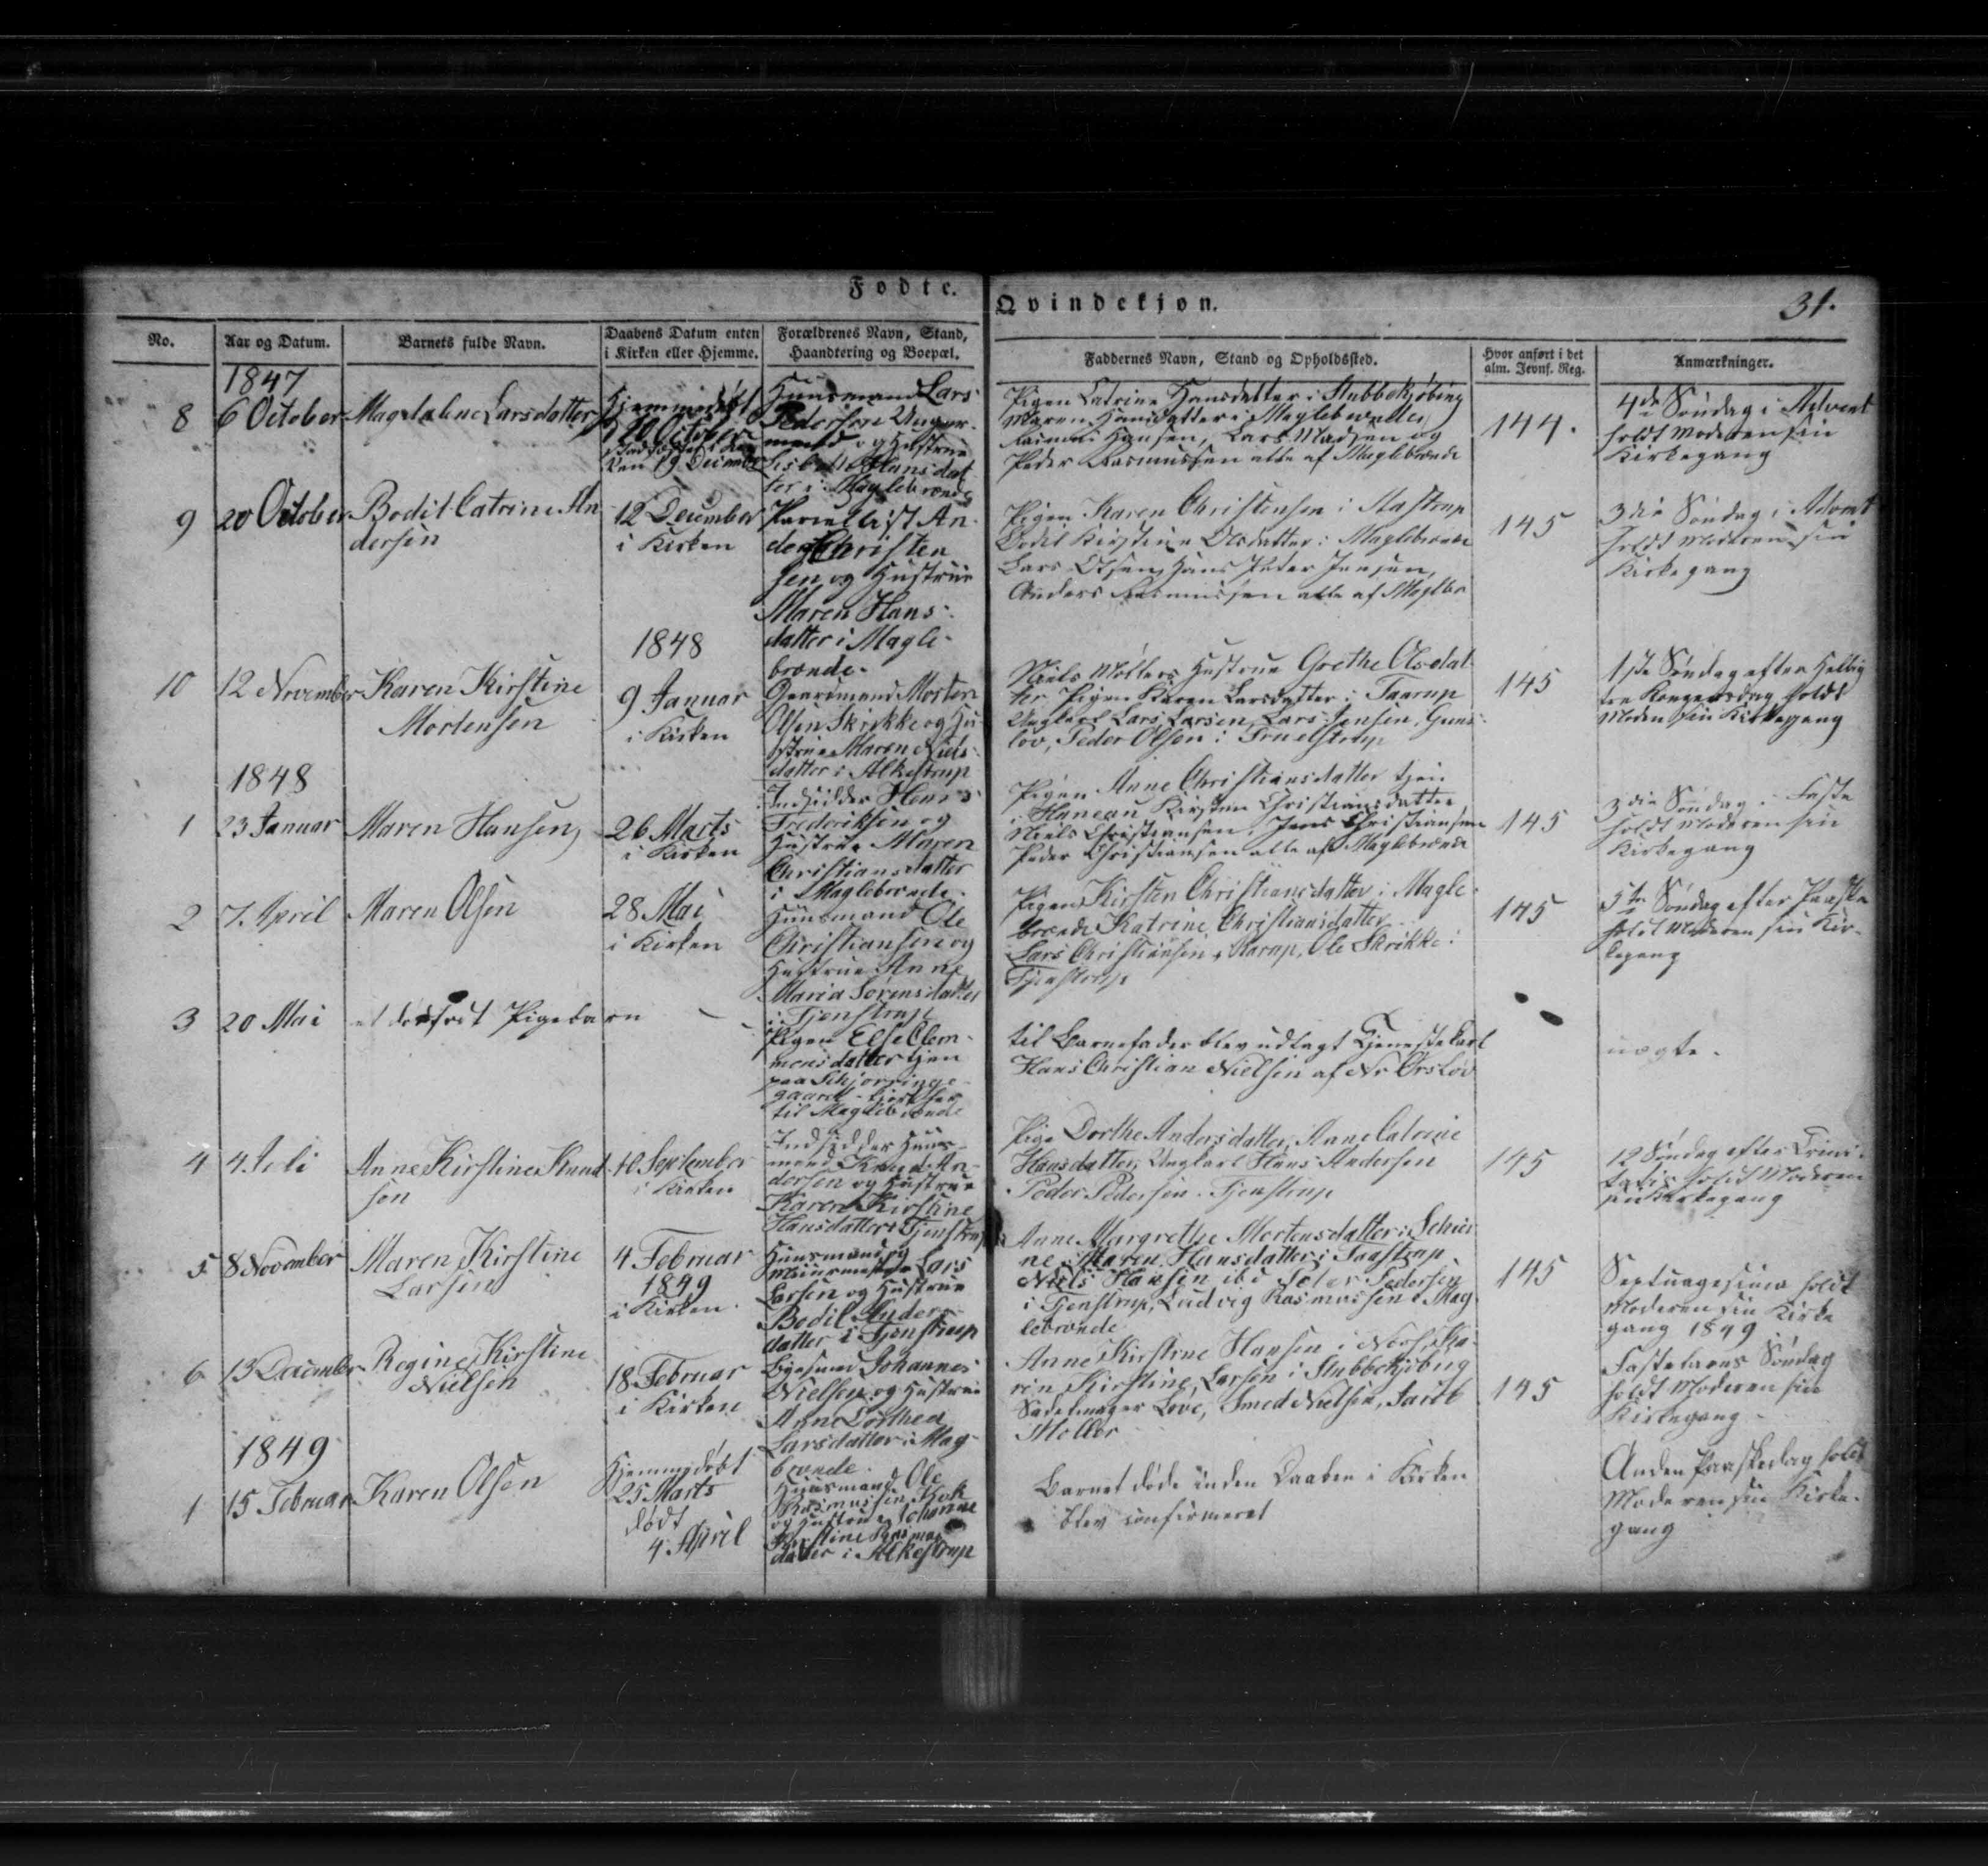 Fodte.
Qvindekjøn.
31.
No.
Aar og Datum.
Barnets fulde Navn.
Daabens Datum enten
i Kirken eller Hjemme.
Forældrenes Navn, Stand,
Haandtering og Boepæl.
Faddernes Navn, Stand og Opholdssted.
Hvor anført i det
alm. Jevnf. Reg.
Anmærkninger.
1847
8
6 October
Magdalene Larsdatter
Hjemmedøbt
10 October
19 December
Huusmand Lars
Pedersen
og Hustrue
Hansdat
ter i Maglebrænde
Pigen Catrine Hansdatter i Stubbekjøbing
Maren Hansdatter i Maglebrænde
Hansen, Lars Madsen og
Peder Rasmussen alle af Maglebrænde
144.
4de Søndag i Advent
holdt Moderen sin
Kirkegang
9
20 October
Bodil Catrine An
dersen
12 December
i Kirken
Parcellist An-
ders Christen
sen og Hustrue
Maren Hans-
datter i Magle-
brænde.
Pigen Karen Christensen i Stastrup
Bodil Kirstine Olsdatter i Maglebrænde
Lars Olsen, Hans Peder Jensen,
Anders Rasmussen alle af Maglebr
145
3die Søndag i Advent
holdt Moderen sin
Kirkegang
10
12 November
Karen Kirstine
Mortensen
1848
9 Januar
i Kirken
Gaardmand Morten
Olsen Skrikke og Hu-
strue Maren Niels-
datter i Alkestrup
Niels Møllers Hustrue Grethe Olsdat
ter Pigen Karen Larsdatter i Taarup
Ungkarl Lars Larsen, Lars Jensen, Guns-
lov, Peder Olsen i Truelstrup
145
1ste Søndag efter Hellig
tre Kongersdag holdt
Moderen sin Kirkegang
1848
1
23 Januar
Maren Hansen
26 Marts
i Kirken
Indsidder Hans
Frederiksen og
Hustrue Maren
Christiansdatter
i Maglebrænde.
Pigen Anne Christiansdatter tjen
i Hanenau Kirstine Christiansdatter
Niels Christiansen, Jens Christiansen
Peder Christiansen alle af Maglebrænde
145
3die Søndag i Faste
holdt Moderen sin
Kirkegang
2
7. April
Maren Olsen
28 Mai
i Kirken
Huusmand Ole
Christiansen og
Hustrue Anne
Maria Sørensdatter
i Tjenstrup
Pigen Kirsten Christiansdatter i Magle-
brænde Katrine Christiansdatter
Lars Christiansen, Ole Skrikke i
Tjenstrup
145
5te Søndag efter Paaske
holdt Moderen sin Kir-
kegang
3
20 Mai
et dødfødt Pigebarn
Pigen Else Clem-
mensdatter tjen
paa Schjørringe
gaard
til Maglebrænde
til Barnefader blev udlagt Tjenestekarl
Hans Christian Nielsen af Nr Ørsløv
145
4
4 Juli
Anne Kirstine Knud
sen
10 September
i Kirken
Indsidder Huus-
mand Knud An-
dersen og Hustrue
Karen Kirstine
Hansdatter i Tjenstrup
Pige Dorthe Andersdatter, Anne Catrine
Hansdatter, Ungkarl Hans Andersen
Peder Pedersen. Tjenstrup
12 Søndag efter Trini-
tatis holdt Moderen
sin Kirkegang
5
8 November
Maren Kirstine
Larsen
4 Februar
1849
i Kirken.
Huusmand og
Muurmester Lars
Larsen og Hustrue
Bodil Anders-
datter i Tjenstrup
Anne Margrethe Mortensdatter i Schier
ne, Maren Hansdatter i Taastrup
Niels Hansen ibi Peter Pedersen
i Tjenstrup, Ludvig Rasmussen i Mag-
lebrænde
145
Septuagesima holdt
Moderen sin Kirke
gang 1849
6
13 December
Regine Kirstine
Nielsen
18 Februar
i Kirken
Johannes
Nielsen og Hustrue
Anne Dorthea
Larsdatter i Mag-
brænde.
Anne Kirstine Hansen i Ka-
ren Kirstine Larsen i Stubbekjøbing
Sadelmager Love, Smed Nielsen, Jacob
Møller
145
Fastelavns Søndag
holdt Moderen sin
Kirkegang
1849
1
15 Februar
Karen Olsen
Hjemmedøbt
25 Marts
dødt
4 April
Huusmand Ole
Rasmussen Kok
og Hustrue Johanne
Kirstine Rasmus
datter i Alkestrup
Barnet døde inden Daaben i Kirken
blev confirmeret
Anden Paaskedag holdt
Moderen sin Kirke-
gang